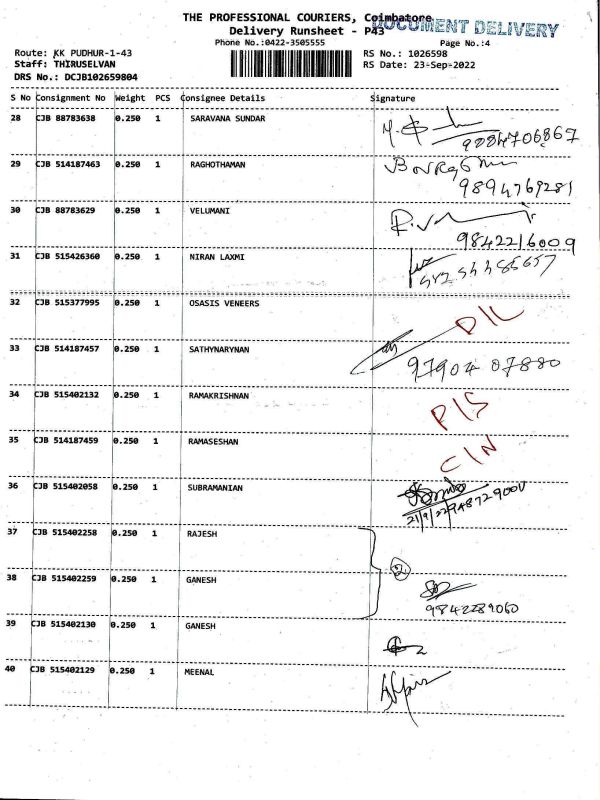 THE PROFESSIONAL COURIERS, Coimbatore
DOCUMENT DELIVERY
Delivery Runsheet - P43
Phone No.:0422-3505555
Page No.:4
Route: KK PUDHUR-1-43
RS No.: 1026598
Staff: THIRUSELVAN
RS Date: 23-Sep-2022
DRS No.: DCJB102659804
S No Consignment No Weight PCS Consignee Details Signature
28 CJB 88783638 0.250 1 SARAVANA SUNDAR
9884706867
29 CJB 514187463 0.250 1 RAGHOTHAMAN
9894769281
30 CJB 88783629 0.250 1 VELUMANI
9842216009
31 CJB 515426360 0.250 1 NIRAN LAXMI
32 CJB 515377995 0.250 1 OSASIS VENEERS
D/L
33 CJB 514187457 0.250 1 SATHYNARYNAN
97904 07880
34 CJB 515402132 0.250 1 RAMAKRISHNAN
P/S
35 CJB 514187459 0.250 1 RAMASESHAN
C/N
36 CJB 515402058 0.250 1 SUBRAMANIAN
37 CJB 515402258 0.250 1 RAJESH
2
38 CJB 515402259 0.250 1 GANESH
9842289060
39 CJB 515402130 0.250 1 GANESH
40 CJB 515402129 0.250 1 MEENAL